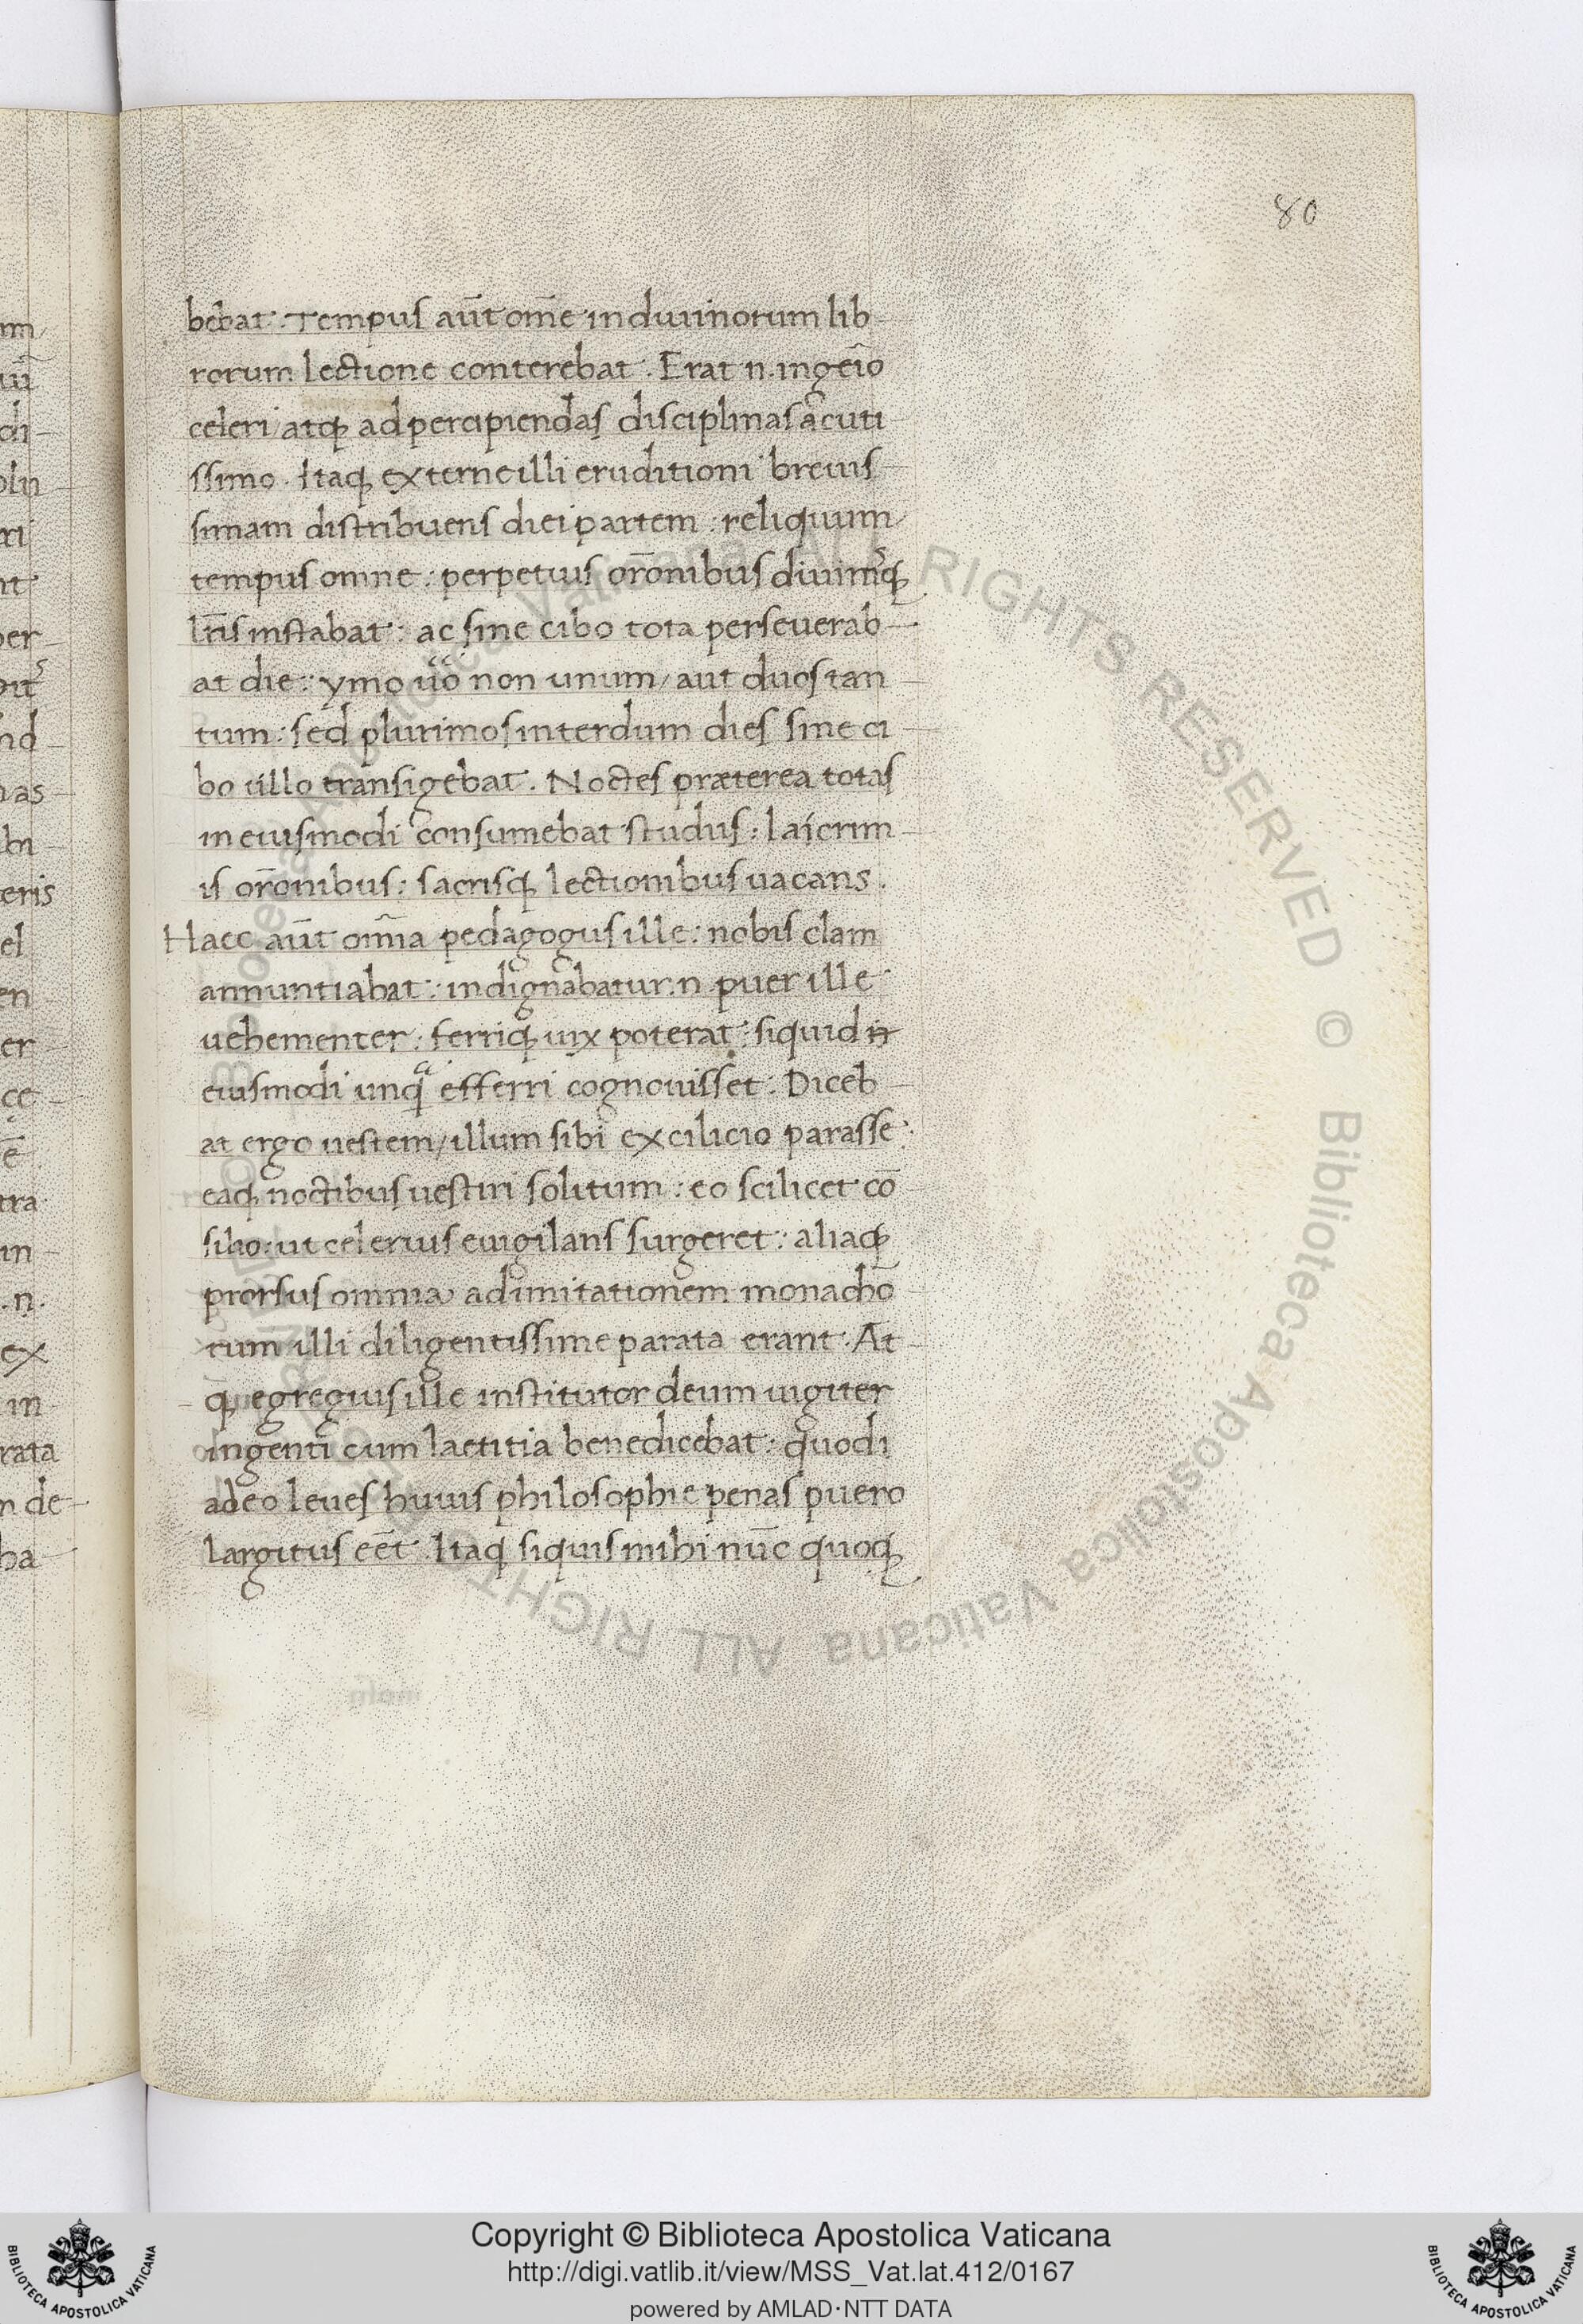 80
bebat. Tempus aūt om̄e in diuinorum lib
rorum lectione conterebat. Erat n. ingeīo
celeri atq; ad percipiendas disciplinas acuti
ssimo. Itaq; externe illi eruditioni breuis
simam distribuens diei partem: reliquum
tempus omne: perpetuis or̄onibus diuinisq;
lr̄is instabat: ac sine cibo tota perseuerab-
at die: ymo ůo non unum/ aut duos tan
tum: sed plurimos interdum dies sine ci
bo ullo transigebat. Noctes præterea totas
in eiusmodi consumebat studiis: lacrim
is or̄onibus: sacrisq; lectionibus uacans.
Haec aūt om̄ia pedagogus ille: nobis clam
annuntiabat: indignabatur. n. puer ille
uehementer: ferriq; uix poterat: siquid
eiusmodi unq̃ efferri cognouisset: Diceb
at ergo uestem/ illum sibi ex cilicio parasse:
eaq; noctibus uestiri solitum: eo scilicet cō
silio: ut celerius euigilans surgeret: aliaq;
prorsus omnia ad imitationem monacho
rum illi diligentissime parata erant. At
q; egregius ille institutor deum iugiter
ingenti cum laetitia benedicebat: quodi
adeo leues huius philosophie penas puero
largitus eēt. Itaq; siquis mihi nūc quoq;
Copyright © Biblioteca Apostolica Vaticana
http://digi.vatlib.it/view/MSS_Vat.lat.412/0167
powered by AMLAD·NTT DATA